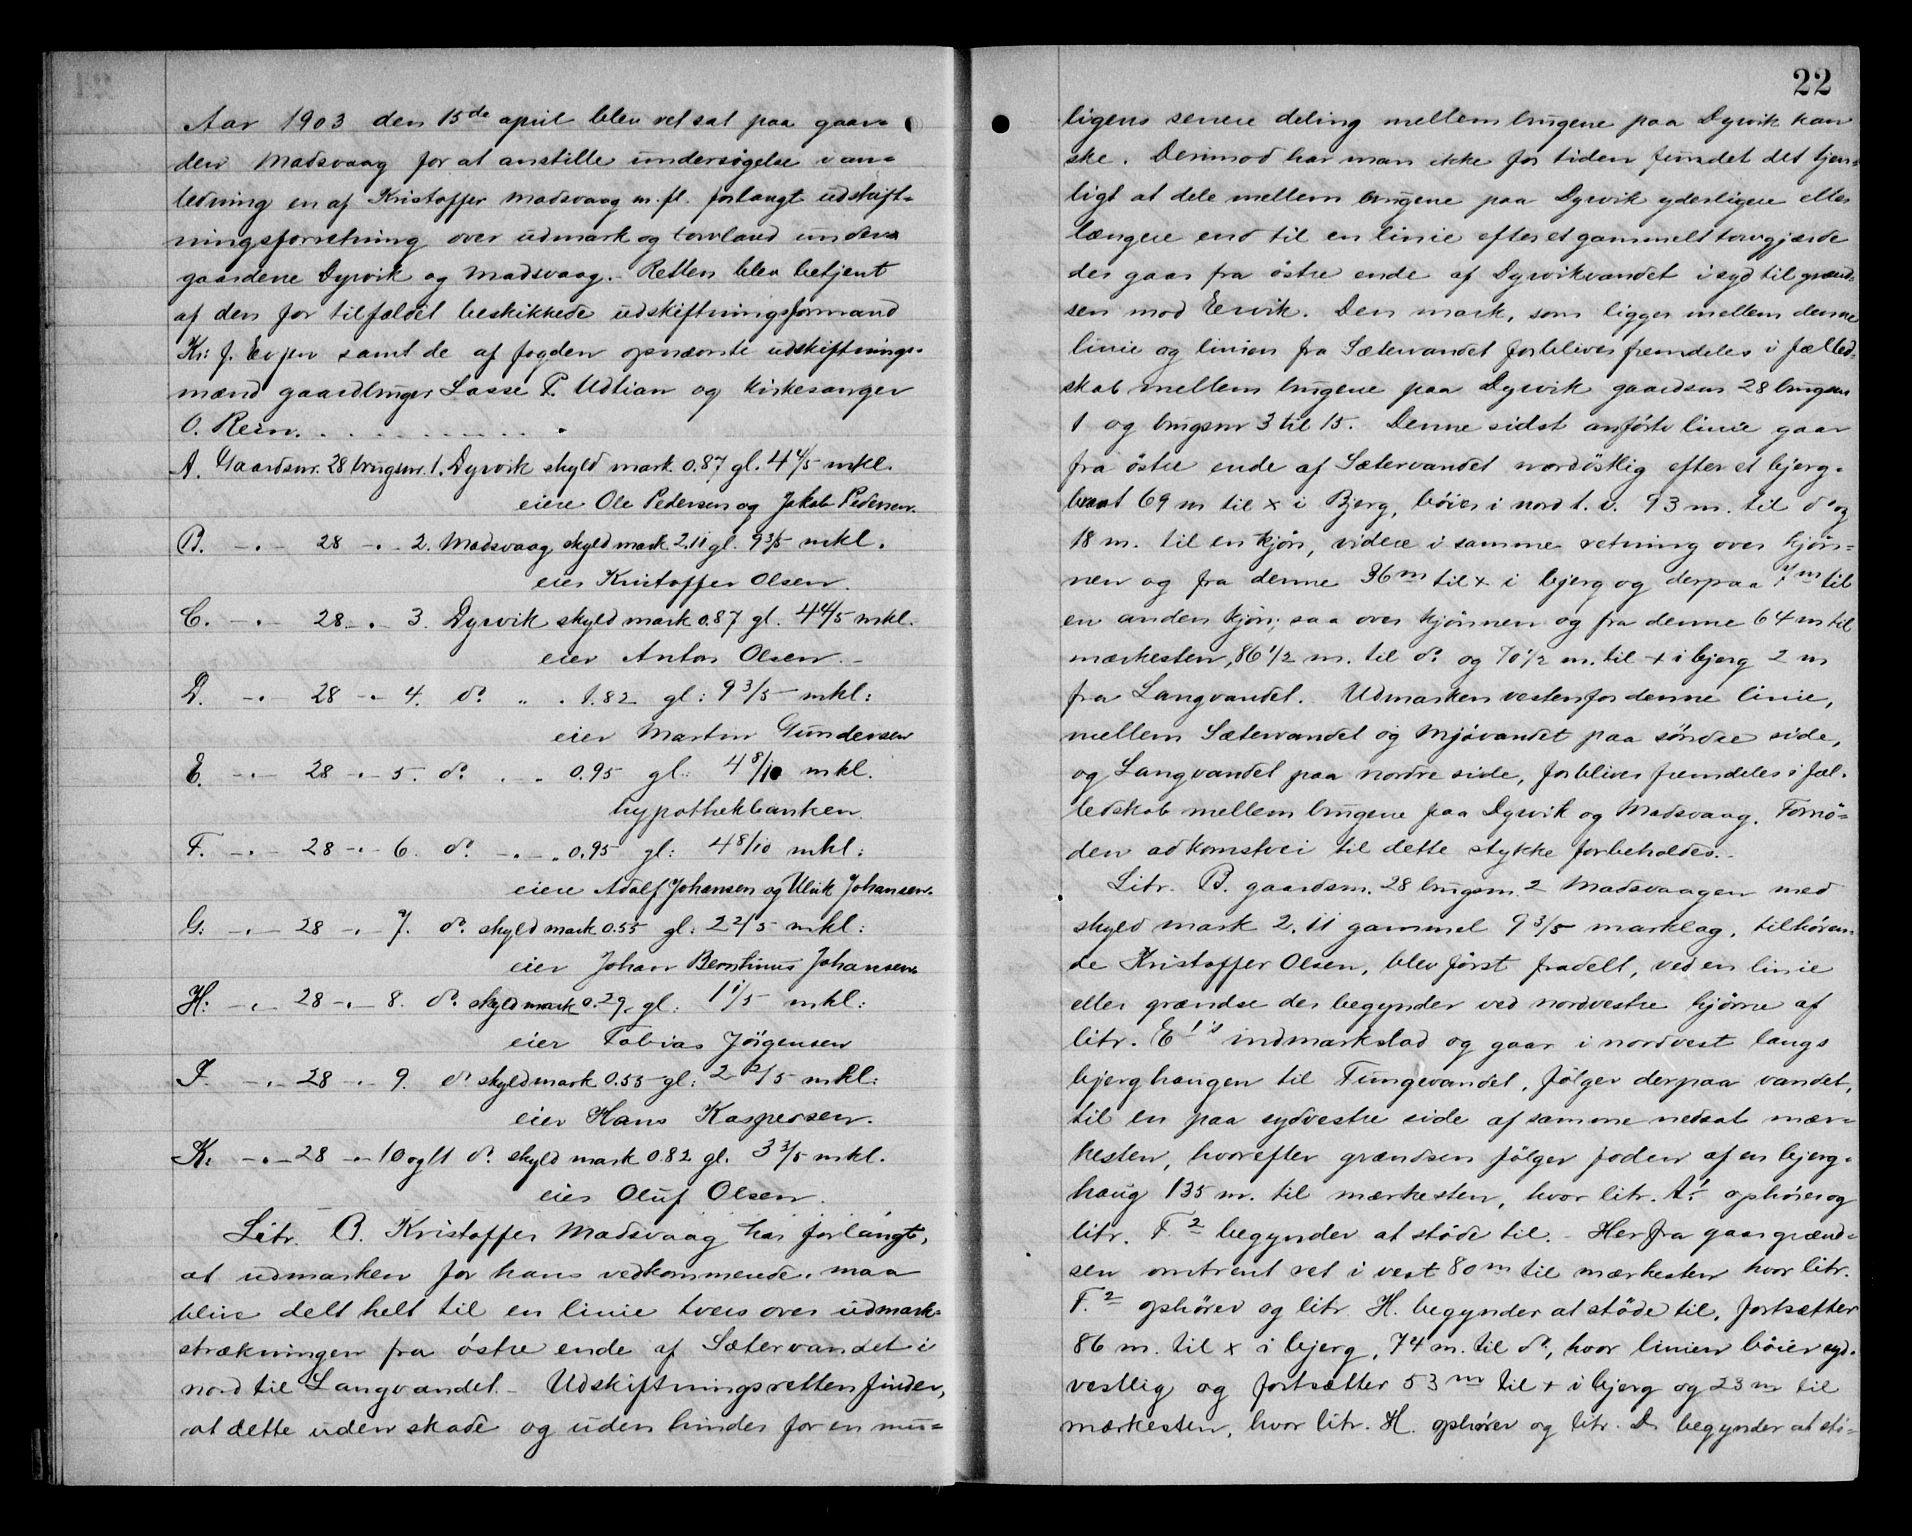 Aar 1903 den 15de april blev ret sat paa gaar-
den Madsvaag for at anstille undersøgelse i an-
ledning en af Kristoffer Madsvaag m. fl. forlangt udskift-
ningsforretning over udmark og torvland under
gaardene Dyrvik og Madsvaag. Retten blev betjent
af den for tilfældet beskikkede udskiftningsformand
Kr: J. Evjen samt de af fogden opnævnte udskiftnings-
mænd gaardbruger Lasse P. Udtian og kirkesanger
O. Rein.
A. Gaardsnr. 28 brugsnr. 1. Dyrvik skyld mark 0.87 gl. 4 4/5 mkl.
eiere Ole Pedersen og Jakob Pedersen.
B. -.- 28 -.- 2. Madsvaag skyld mark 2.11 gl. 9 3/5 mkl.
eier Kristoffer Olsen.
C. -.- 28 -.- 3. Dyrvik skyld mark 0.87 gl. 4 4/5 mkl.
eier Anton Olsen.-
D. -.- 28 -.- 4. do. „ . 1.82 gl: 9 3/5 mkl:
eier Martin Gundersen
E. -.- 28 -.- 5. do. . - 0.95 gl: 4 8/10 mkl.
hypothekbanken.
F. -.- 28 -.- 6. do. -.-. 0.95 gl: 4 8/10 mkl:
eiere Adolf Johansen og Ulrik Johansen.
G: -.- 28 -.- 7. do. skyld mark 0.55 gl: 2 2/5 mkl:
eier Johan Berntinus Johansen
H: -.- 28 -.- 8. do. skyld mark 0.29 gl: 1 1/5 mkl:
eier Tobias Jörgensen
I. -.- 28 -.- 9. do skyld mark 0.55 gl: 2 2/5 mkl:
eier Hans Kaspersen.
K: -.- 28 -.- 10 og 11 do. skyld mark 0.82 gl. 3 3/5 mkl.
eier Oluf Olsen.
Litr. B. Kristoffer Madsvaag har forlangt,
at udmarken for hans vedkommende. maa
blive delt helt til en linie tvers over udmark-
strækningen fra östre ende af Sætervandet i
nord til Langvandet.- Udskiftningsretten finder,
at dette uden skade og uden hinder for en mu-
22
ligens senere deling mellem brugene paa Dyrvik kan
ske. Derimod har man ikke for tiden fundet det tjen-
ligt at dele mellem brugene paa Dyrvik yderligere eller
længere end til en linie efter et gammelt torvgjærde
der gaar fra östre ende af Dyrvikvandet i syd til grænd-
sen mod Ervik. Den mark, som ligger mellem denne
linie og linien fra Sætervandet forbliver fremdeles i fælled-
skab mellem brugene paa Dyrvik gaardsnr 28 brugsnr
1 og brugsnr 3 til 15. Denne sidst anförte linie gaar
fra östre ende af Sætervandet nordöstlig efter et bjerg-
brat 69 m til x i Bjerg, böier i nord t. v. 93 m. til do og
18 m. til en kjön, videre i samme retning over kjön-
nen og fra denne 36 m til x i bjerg og derpaa 7 m til
en anden kjön; saa over kjönnen og fra denne 64 m til
mærkesten, 86 1/2 m. til do. og 70 1/2 m. til + i bjerg 2 m
fra Langvandet. Udmarken vestenfor denne linie,
mellem Sætervandet og Mjövandet paa söndre side,
og Langvandet paa nordre side, forbliver fremdeles i fæl-
ledskab mellem brugene paa Dyrvik og Madsvaag. Fornö-
den adkomstvei til dette stykke forbeholdes.-
Litr. B. gaardsnr. 28 brugsnr. 2 Madsvaagen med
skyld mark 2.11 gammel 9 3/5 marklag, tilhören-
de Kristoffer Olsen, blev först fradelt, ved en linie
eller grændse der begynder ved nordvestre hjörne af
litr. E 1's indmarkslod og gaar i nordvest langs
bjerghaugen til Tungevandet, fölger derpaa vandet,
til en paa sydvestre side af samme nedsat mær-
kesten, hvorefter grændsen fölger foden af en bjerg-
haug 135 m. til mærkesten, hvor litr. A 1 ophörer og
litr. F. 2 begynder at stöde til.- Herfra gaar grænd-
sen omtrent ret i vest 80 m til mærkesten hvor litr.
F. 2 ophörer og litr. H. begynder at stöde til, fortsætter
86 m. til x i bjerg, 74 m. til do, hvor linien böier syd-
vestlig og fortsætter 53 m til + i bjerg og 23 m til
mærkesten, hvor litr. H. ophörer og litr. D. begynder at stö-